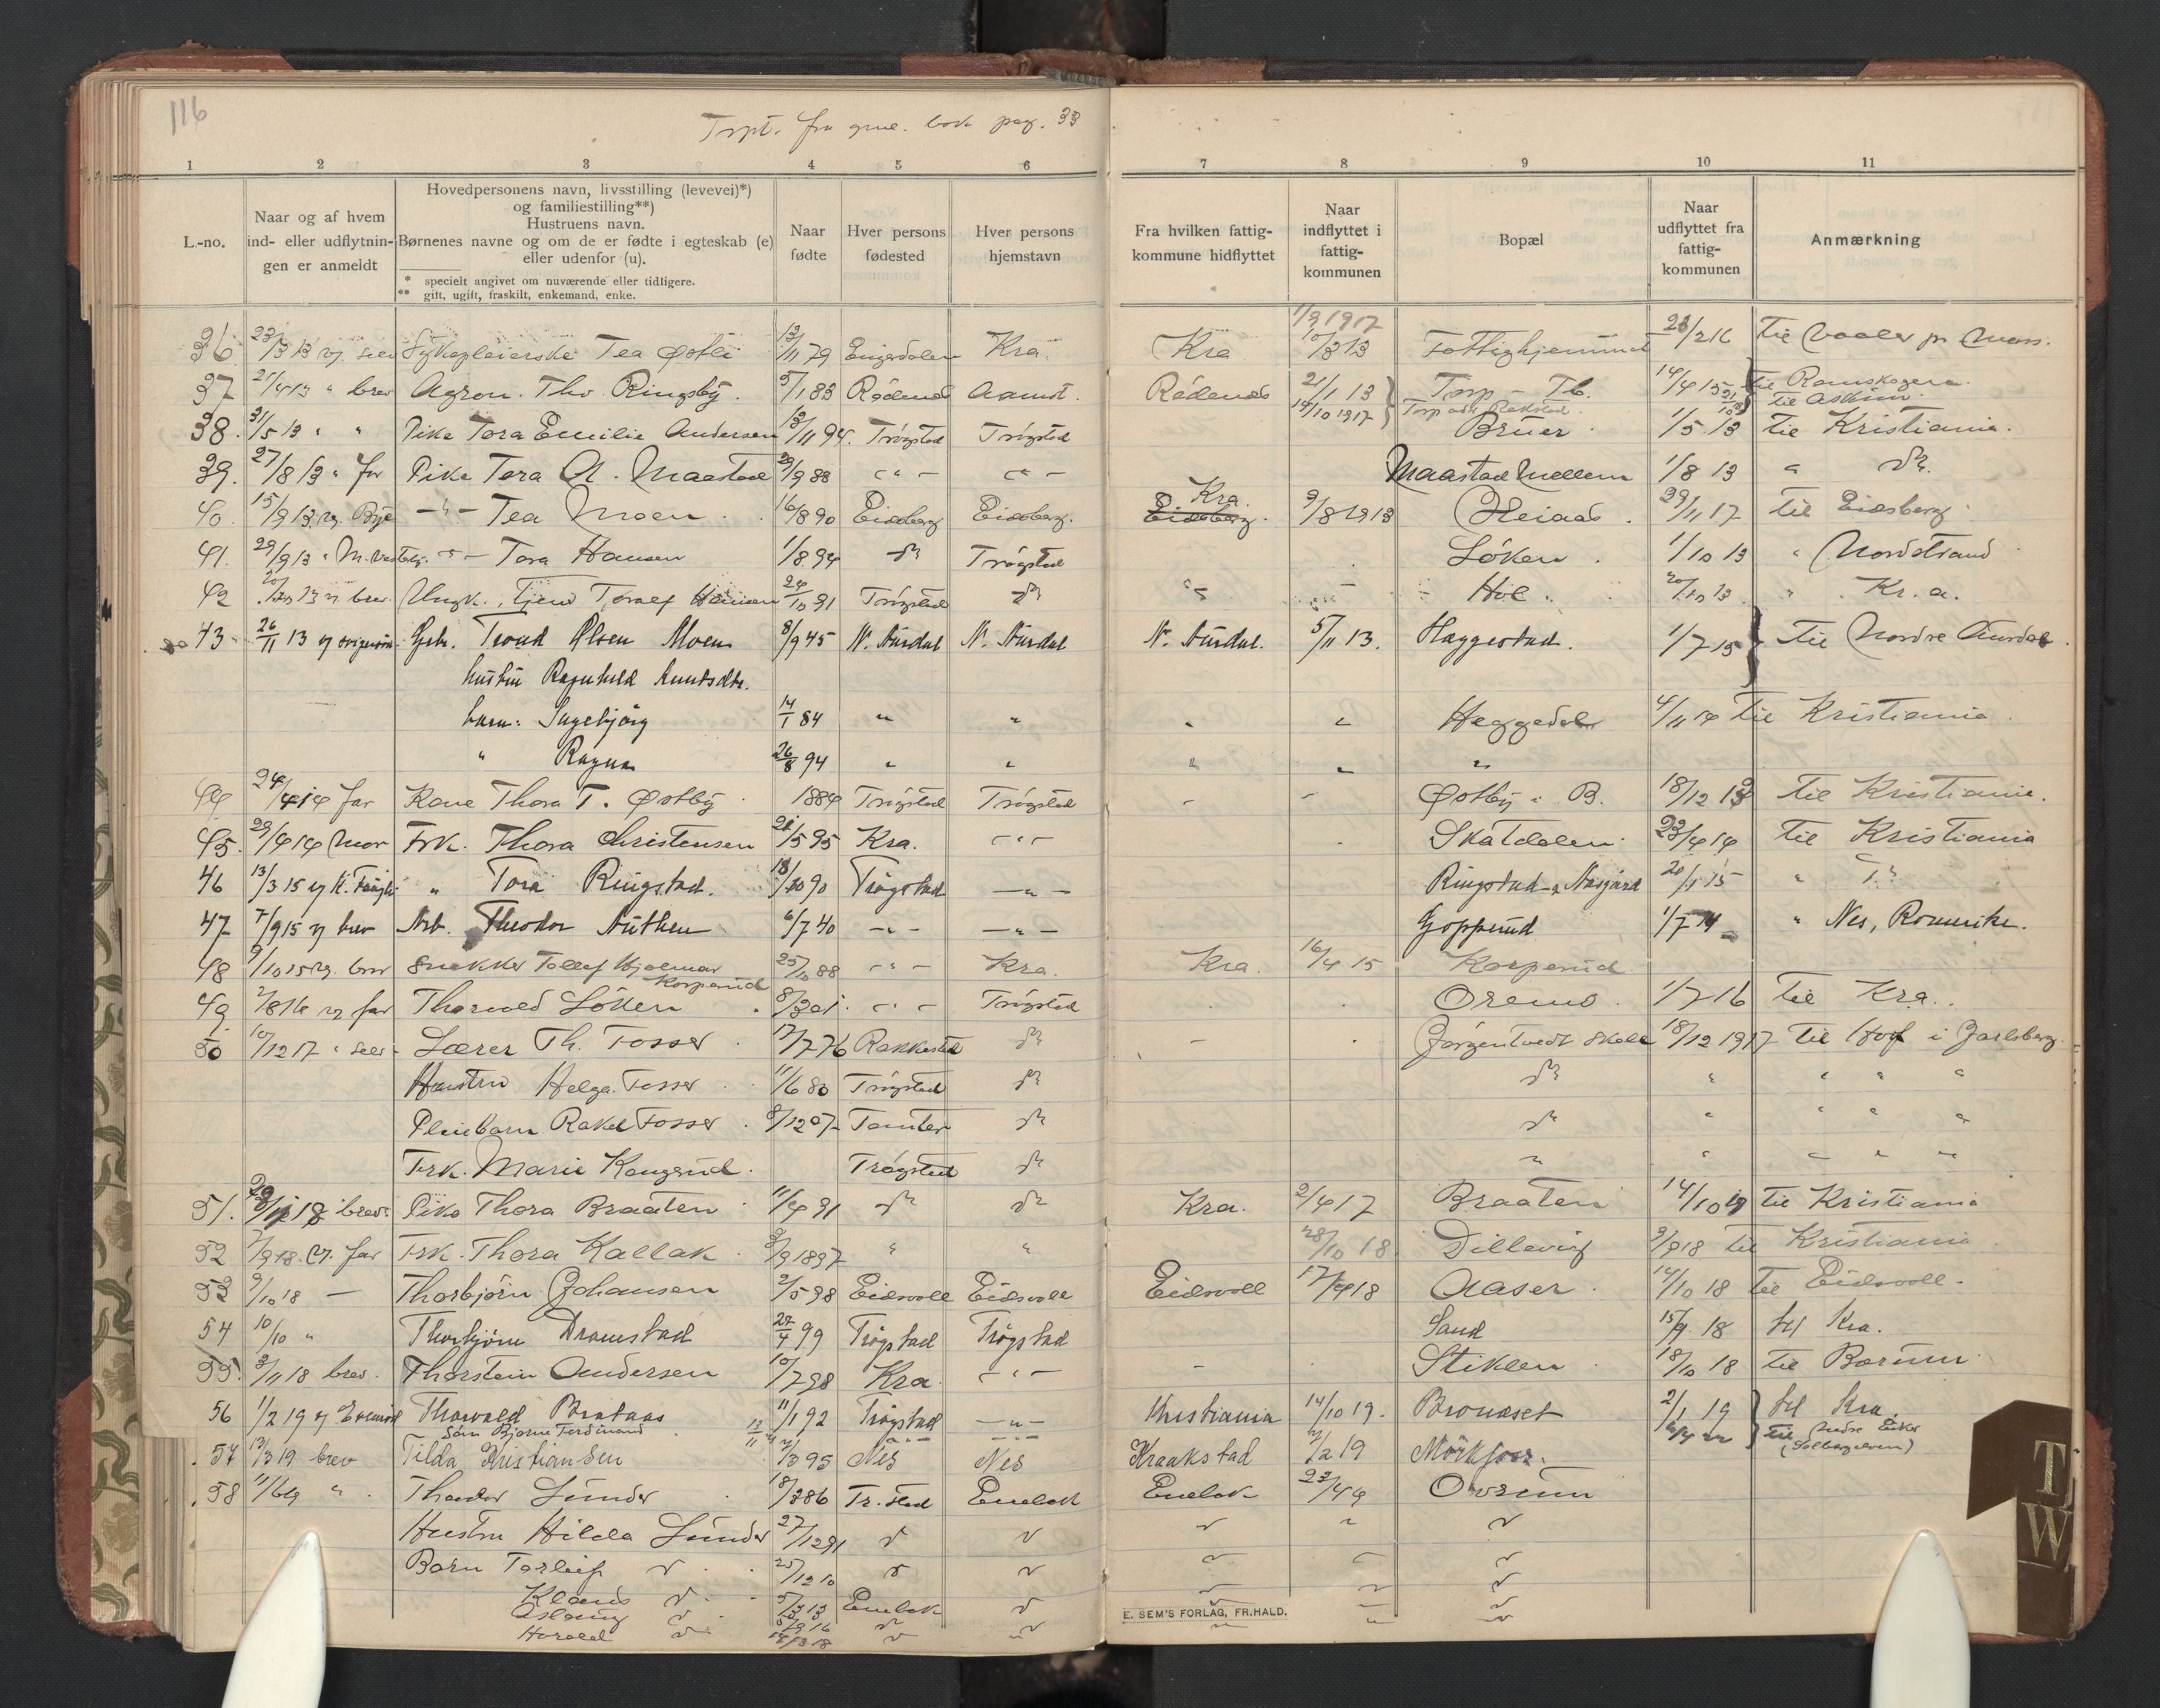 116
Trspt. fra gml. bok pag. 33
1 2 3 4 5 6 7 8 9 10 11
L.-no.
Naar og af hvem ind- eller udflytnin- gen er anmeldt
Hovedpersonens navn, livsstilling (levevei)*) og familiestilling**) Hustruens navn. Børnenes navne og om de er fødte i egteskab (e) eller udenfor (u).
* specielt angivet om nuværende eller tidligere.
** gift, ugift, fraskilt, enkemand, enke.
Naar fødte
Hver persons fødested
Hver persons hjemstavn
Fra hvilken fattig- kommune hidflyttet
Naar indflyttet i fattig- kommunen
Bopæl
Naar udflyttet fra fattig- kommunen
Anmærkning
1/9 1917
36 23/3 13 selv Sykepleierske Tea Østli 13/11 79 Kra. Kra 10/3 13 Fattighjemmet 23/2 16 Til Vaaler pr Moss.
37 21/4 13 " brev Agron. Thv. Ringsby. 5/1 83 Rødenes Rødenes 21/1 13 Torp - Tb. 14/4 15 Til Romskogen.
14/10 1917 Til Askim.
38. 31/5 13 " " Pike Tora Emilie Andersen 13/11 94. Trøgstad Trøgstad Bruer 1/5 13 Til Kristiania.
39. 27/8 13 " far Pike Tora A. Maastad 29/9 88 - " - - " - Maastad Mellem 1/8 13 " do.
40. 15/9 13 -"- Tea Moen 16/8 90 Eidsberg Eidsberg. Kra. Eidsberg. 9/8 1913 Heiaas. 29/11 17 Til Eidsberg
41. 29/9 13 " -"- Tora Hansen 1/8 94 do Trøgstad Løken 1/10 13 " Nordstrand
42 20/10 13 brev. Ungk. Tjener Toralf Hansen 24/10 91 Trøgstad do Hol 20/10 13 " Kr.a.
43 26/11 13 Gbr. Trond Olsen Moen 8/9 45 N. Aurdal N. Aurdal N. Aurdal. 5/11 13. Haggestad. 1/7 15 Til Nordre Aurdal.
hustru Ragnhild Knutsdtr.
barn: Ingebjørg 14/1 84 " " " " Heggedal 4/11 14 Til Kristiania
" Ragna 26/8 94 " " " " "
44 24/4 14 far Kone Thora T. Østby 1884 Trøgstad Trøgstad - - Østby i B. 18/12 13 Til Kristiania.
45. 29/4 14 Mor Frk. Thora Christensen 21/5 95 Kra. - " - Skatdalen 23/4 14 Til Kristiania
46 13/3 15 " Tora Ringstad. 18/10 90 Trøgstad - " - Ringstad 20/1 15 " do
47 7/9 15 brev Arb. Theodor Authen 6/7 40 - " - - " - Gopperud 1/7 14 " Nes, Romerike.
48 9/10 15 brev Snekker Tollef Hjalmar Korperud 25/10 88 - " - Kra. Kra. 16/4 15 Korperud
49 2/8 16 far Thorvald Löken 8/3 01 - " - Trøgstad Oremo. 1/7 16 Til Kra.
50 10/12 17 " selv Lærer Th. Fosser 17/7 76 Rakkestad do - Jørgentvedt skole 18/12 1917 Til Hof i Jarlsberg
Hustru Helga Fosser 11/6 80 Trøgstad do do " " " "
Pleiebarn Rakel Fosser 8/12 07 Tomter do do " " " "
Frk. Marie Kongerud. Trøgstad do " " " " "
51. brev. Pike Thora Braaten 11/4 91 do do Kra. 2/4 17 Braaten 14/10 19 Til Kristiania
52 7/9 18. far Frk. Thora Kallak 3/9 1897 " " 28/10 18 Dillevig 3/9 18 Til Kristiania
53 9/10 18 — Thorbjørn Johansen 2/5 98 Eidsvoll Eidsvoll Eidsvoll 17/4 18 Aaser 14/10 18 Til Eidsvoll.
54 10/10 " Thorbjørn Dramstad 27/4 99 Trøgstad Trøgstad Sand 15/9 18 til Kra.
55. 3/11 18 brev. Thorstein Andersen 10/7 98 Kra - " - - Stiklen 18/10 18 Til Bærum
56 1/2 19 Thorvald Brataas 11/1 92 Trøgstad - " - Kristiania 14/10 19. Bronaset 2/1 19 til Kra.
Søn Bjarne Ferdinand 13/11 - " - - " - Til Nedre Eiker (Solbergelven)
57 13/3 19 brev Tilda Kristiansen 95 Nes Nes Kraakstad 2 19 Mörkfoss.
58 11/6 19 " Theodor Lunder 18/3 86 Tr.stad Enebak Enebak 23/4 19 Ovrum
Hustru Hilda Lunder 27/12 91 do do do " do
Barn Torleif do 25/12 10 do do
Klaus do 5/3 13 Enebak do
Aslaug do
Harald do
E. SEM'S FORLAG, FR.HALD.
TW